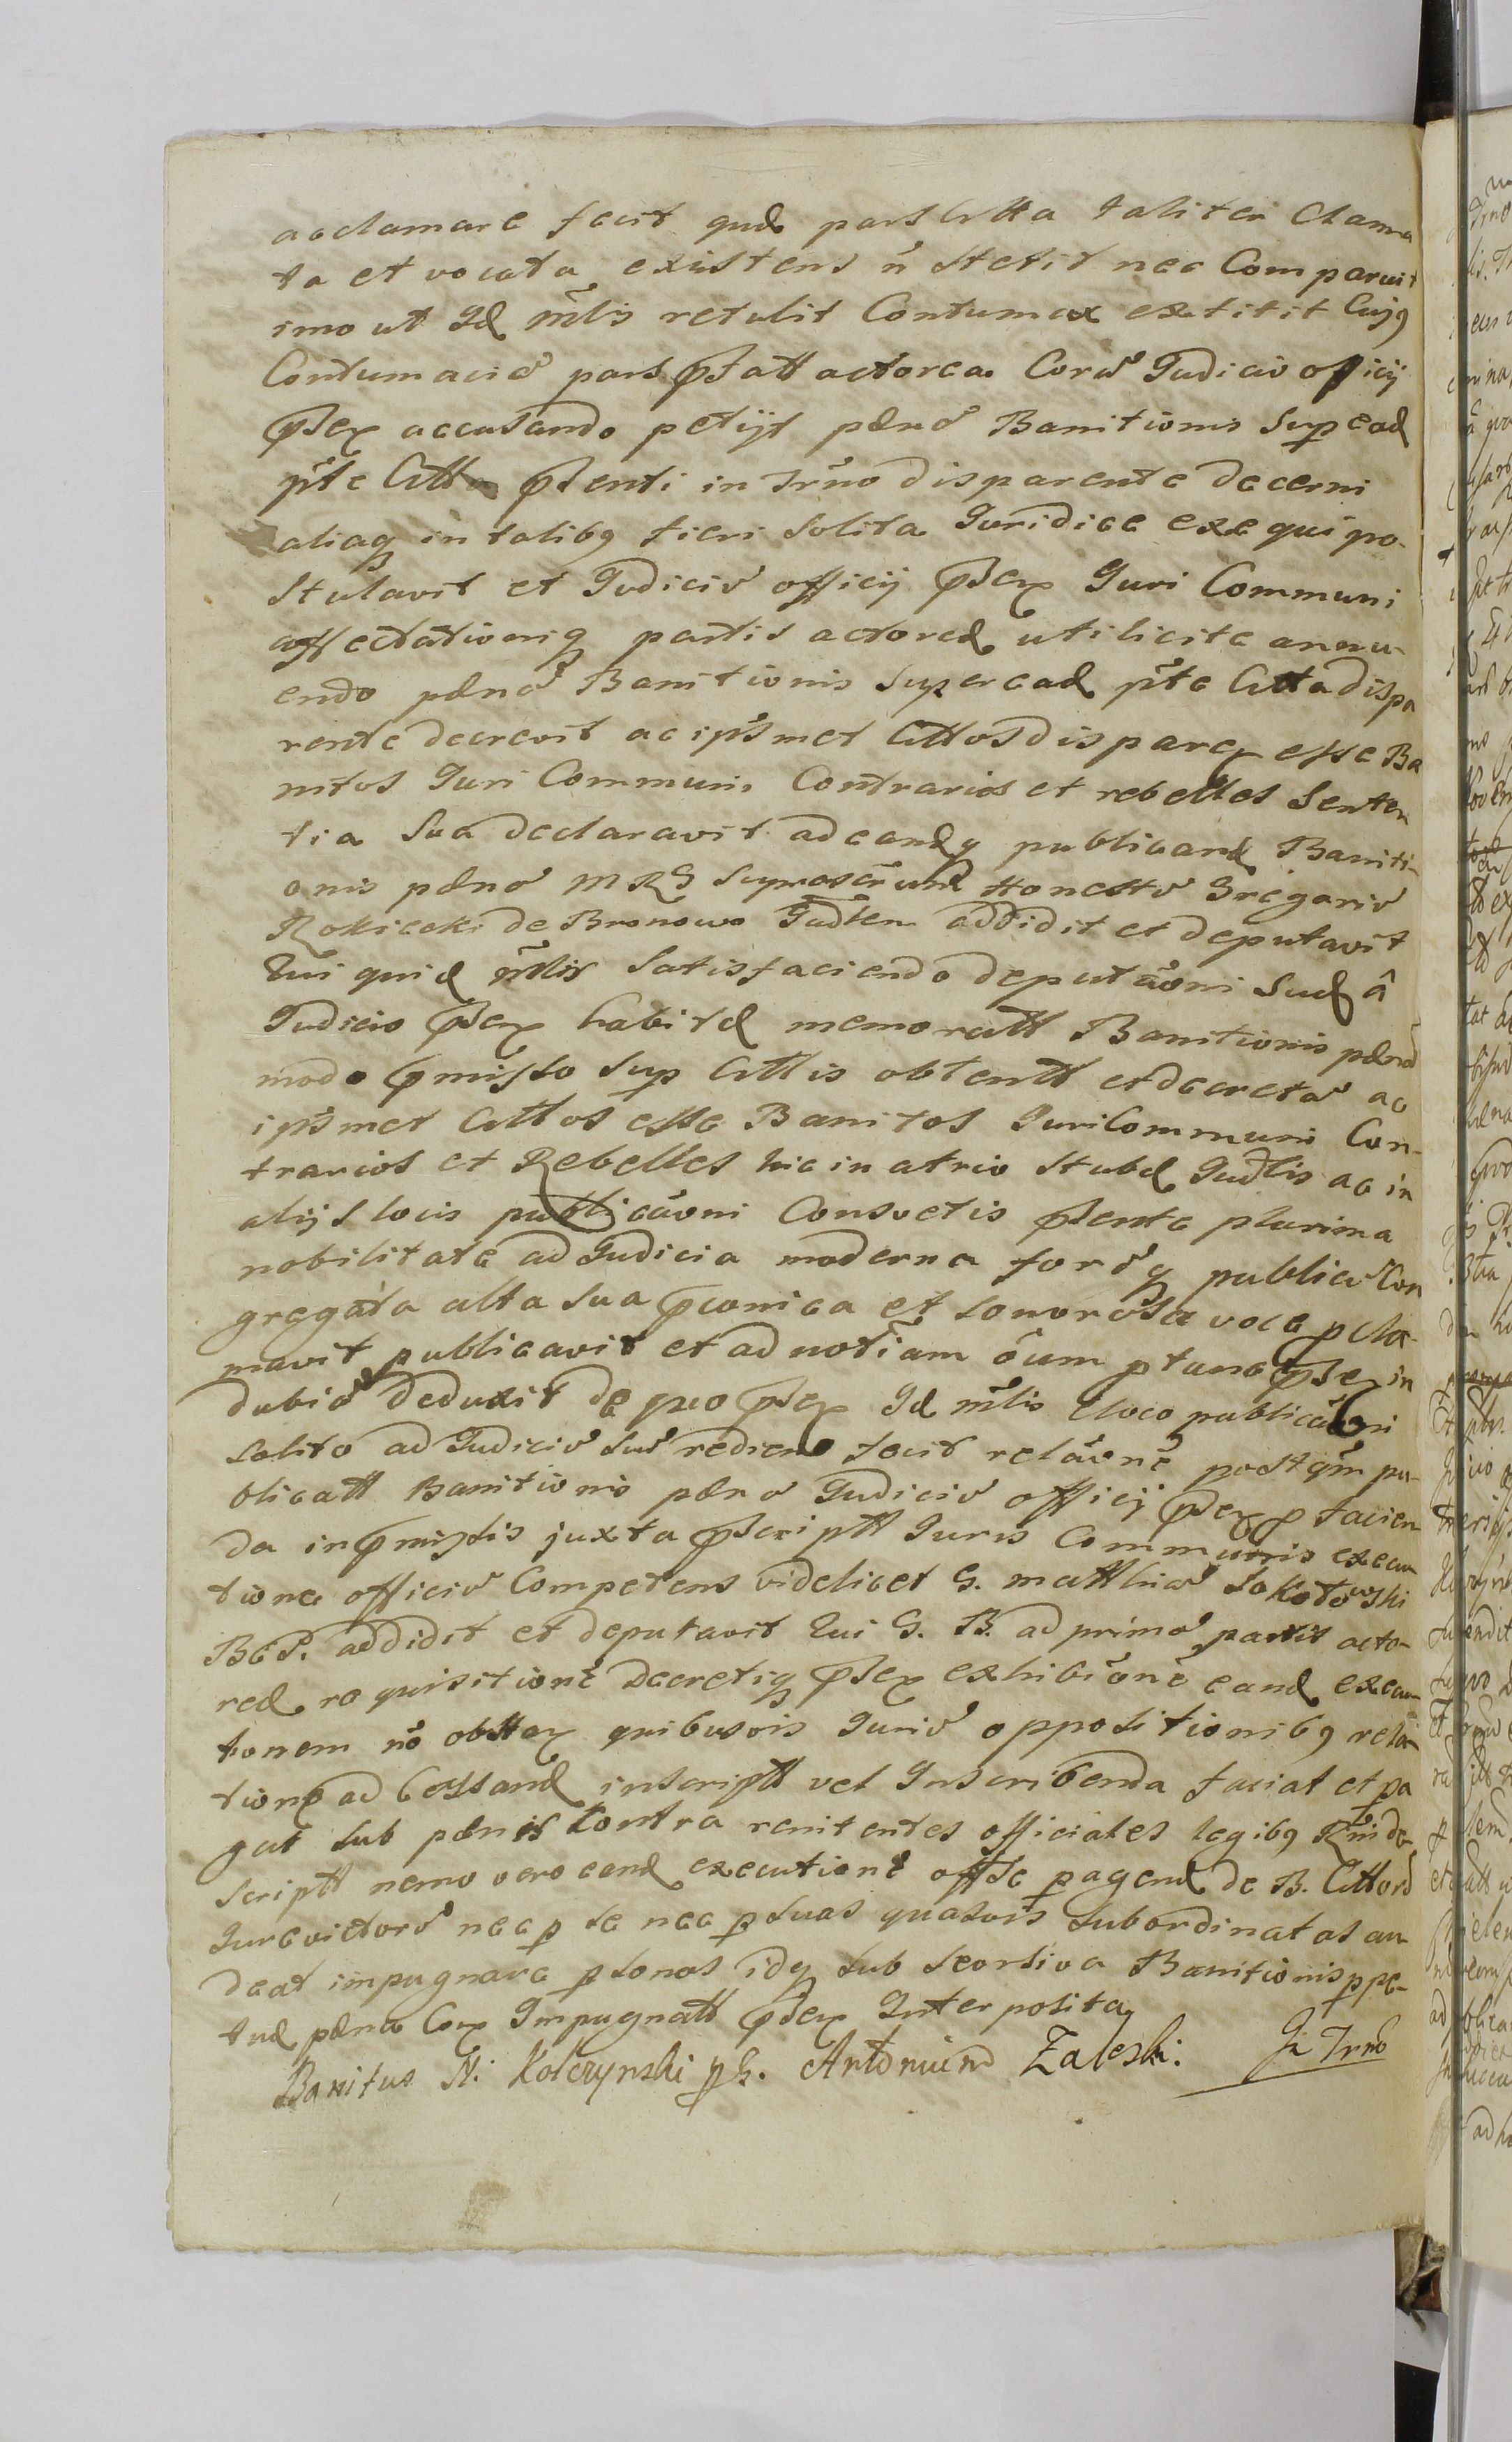 acclamare fecit quæ pars Citta taliter Clama
ta et vocata existens ñ stetit nec Comparuit
imo ut Id mlis retulit Contumax extitit Cujq
Contumaciã pars pstatt actorea Corã Judicio officij
pnsex accusando petijt pænã Banitionis sup ead
pte Citta psenti in Trño disparente decerni
aliaq in talibq fieri solita Juridice exequi po-
stulavit et Judiciũ officij pnsex Juri Communi
affectationiq partis actoreæ uti licite annu-
endo pænã Banitionis super ead pte Citta dispa
rente decrevit ac ipsmet Cittos disparex esse Ba
nitos Juri Communi Contrarios et rebelles senten
tia sua declaravit ad eandq publicand Baniti-
onis pænã MRG suprascrum Honestũ Gregoriũ
Rokicki de Bronowo Judlem addidit et deputavit
Qui quid mlis satisfaciendo deputaõni suæ â
Judicio pnsex habitæ memoratt Banitionis pænã
modo pmisso sup Cittis obtentt et decretã ac
ipsmet Cittos esse Banitos Juri Communi Con-
trarios et Rebelles hic in atrio stubæ Judlis ac in
alijs locis publicaõni Consvetis psente plurima
nobilitate ad Judicia moderna forũq publicũ Con
gregata alta sua pconica et sonorosa voce pcla-
mavit publicavit et ad notiam oium ptunc psex in
dubiã deduxit de quo pnsex Id mlis e loco publicaõni
solito ad Judiciũ suũ rediens fecit relaõnẽ postqm pu-
blicatt Banitionis pæna Judiciũ officij pnsex p facien
da in pmissis juxta pscriptt Juris Communis execu
tione officiũ Competens videlicet G. Matthiã Sokołowski
BGP. addidit et deputavit Qui G. B. ad primã partis acto-
reæ requisitionẽ Decretiq pnsex exhibiõnẽ eand execu
tionem nõ obstax quibusvis Juriũ oppositionibq rela
tionẽ ad Cessand inscriptt vel Inscribenda faciat et pa
gat sub pænis Contra renitentes officiales legibq Rni de-
scriptt nemo vero eand executionẽ offse pagend de B. Cittorũ
Jurevictorũ nec p se nec p suas quasvis subordinatas au
deat impugnare psonas idq sub seorsiva Banitionis ppe-
tuæ pæna Cox Impugnatt pnsex Interposita
Banitus N: Kolczynski p G. Antonium Zaleski. In Trno